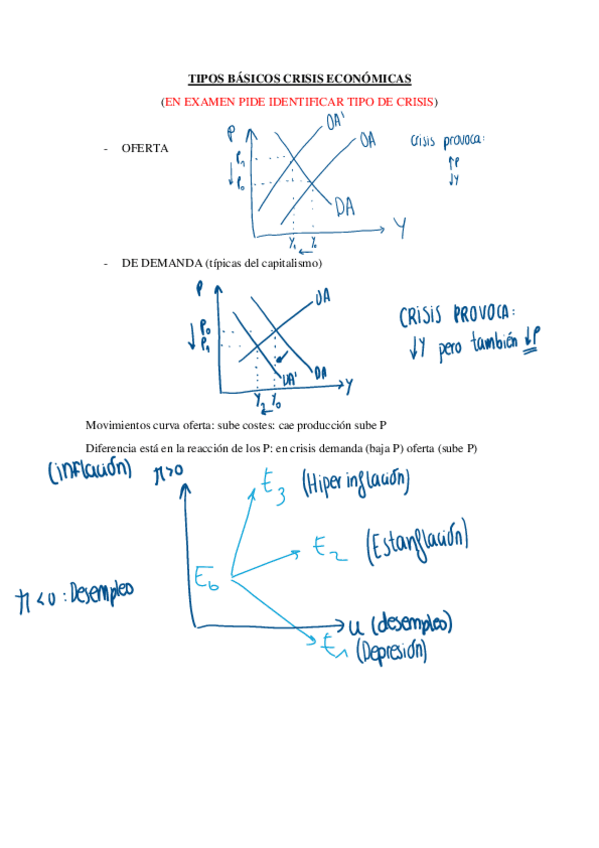 TIPOS BÁSICOS CRISIS ECONÓMICAS
(EN EXAMEN PIDE IDENTIFICAR TIPO DE CRISIS)
- OFERTA
P
P₁
↓ P₀
OA'
OA
DA
Y
Y₁ Y₀
←
Crisis provoca:
↑P
↓Y
- DE DEMANDA (típicas del capitalismo)
P
P₀
↓ P₁
OA
DA' DA
Y
Y₂ Y₀
←
CRISIS PROVOCA:
↓Y pero también ↓P
Movimientos curva oferta: sube costes: cae producción sube P
Diferencia está en la reacción de los P: en crisis demanda (baja P) oferta (sube P)
(inflación) π>0
E₃ (Hiperinflación)
E₂ (Estanflación)
E₀
π<0: Desempleo
u (desempleo)
E₁ (Depresión)